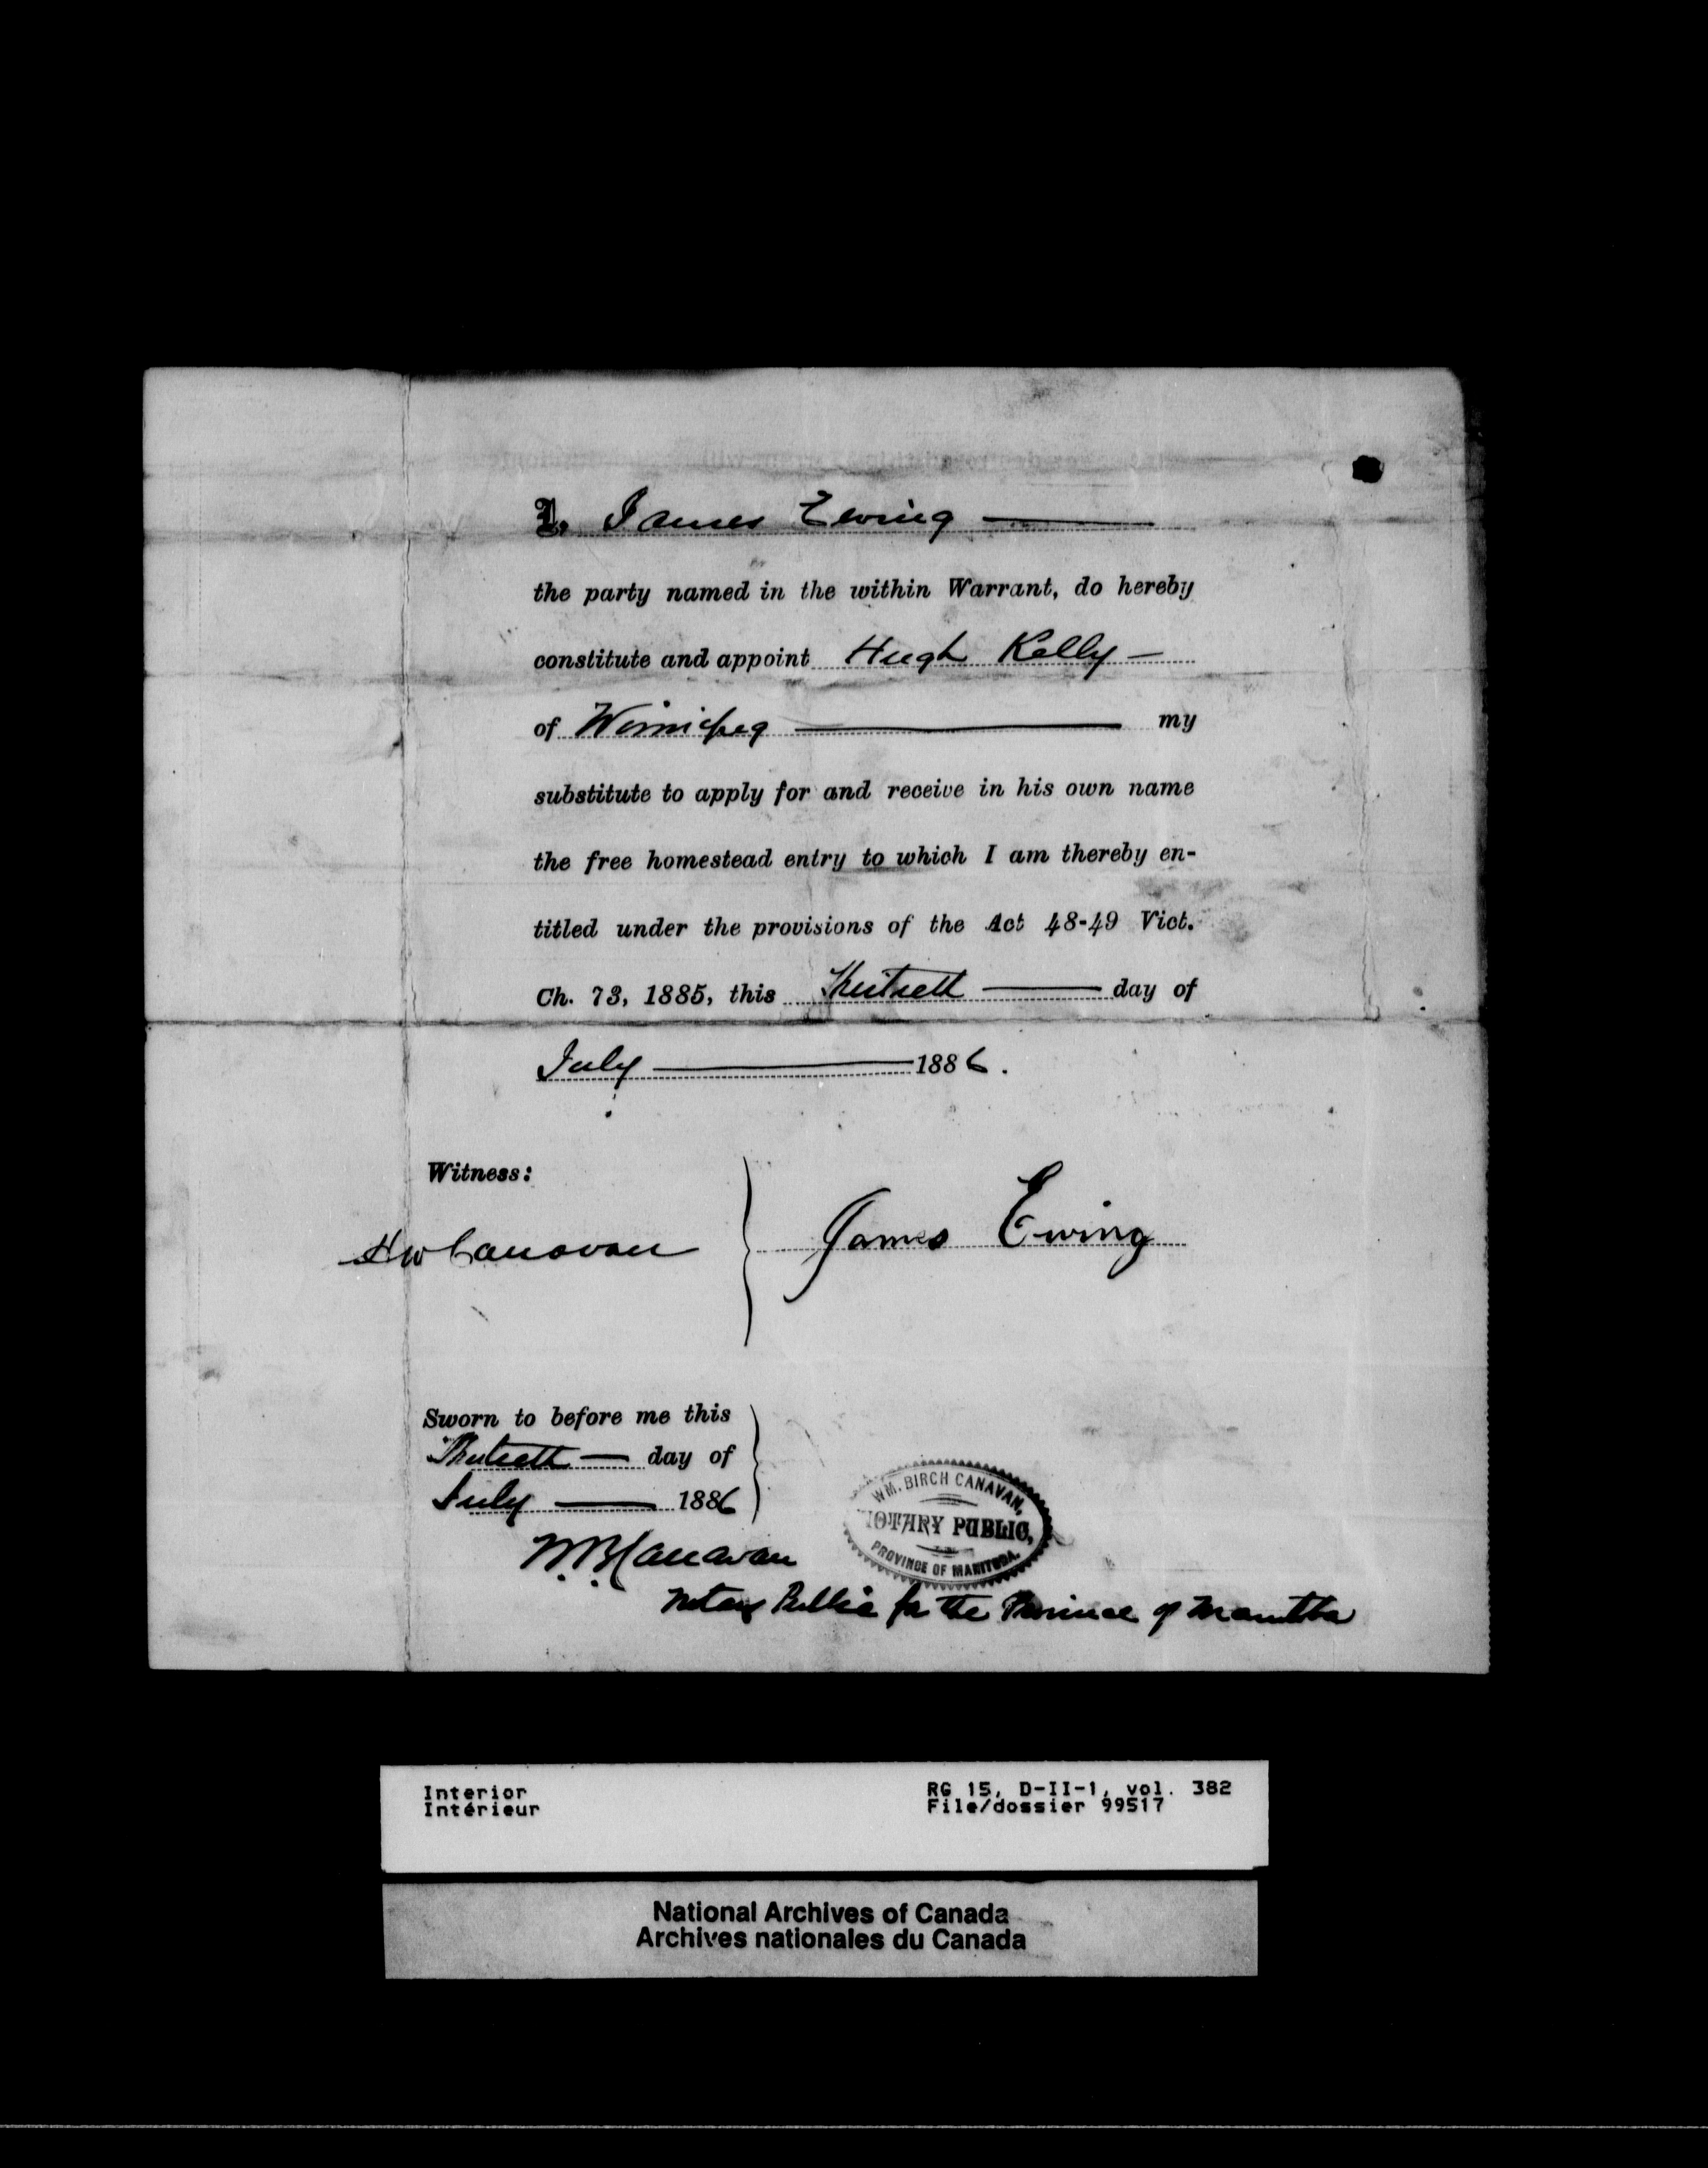 I, James Ewing
the party named in the within Warrant, do hereby
constitute and appoint Hugh Kelly
of Winnipeg my
substitute to apply for and receive in his own name
the free homestead entry to which I am thereby en-
titled under the provisions of the Act 48-49 Vict.
Ch. 73, 1885, this Thirtieth day of
July 1886.
Witness:
H W Canavan
James Ewing
Sworn to before me this
Thirtieth day of
July 1886
W. B. Canavan
WM. BIRCH CANAVAN,
NOTARY PUBLIC,
PROVINCE OF MANITOBA.
Notary Public for the Province of Manitoba
Interior
Intérieur
RG 15, D-II-1, vol. 382
File/dossier 99517
National Archives of Canada
Archives nationales du Canada